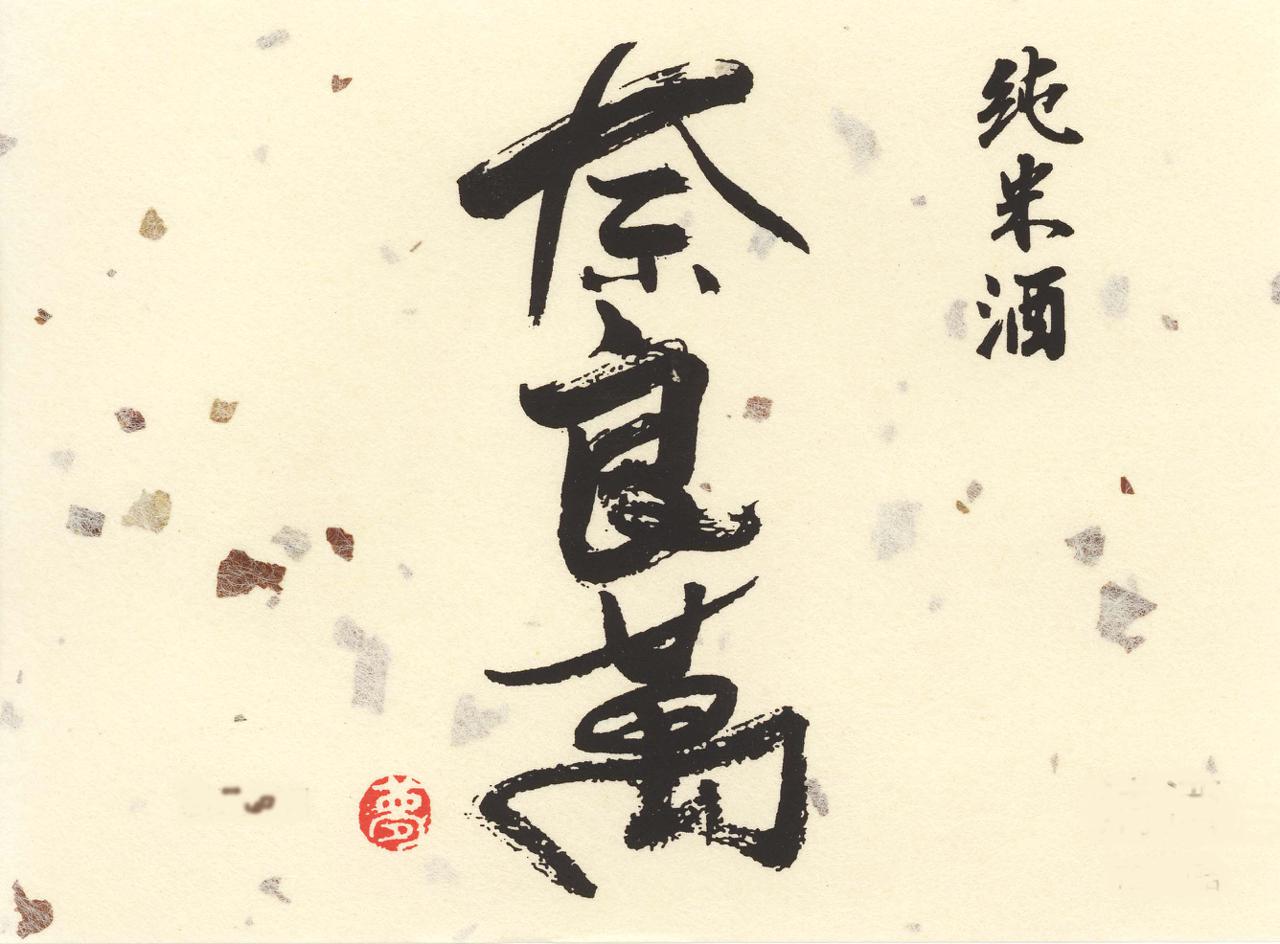 純米酒
奈良萬
夢